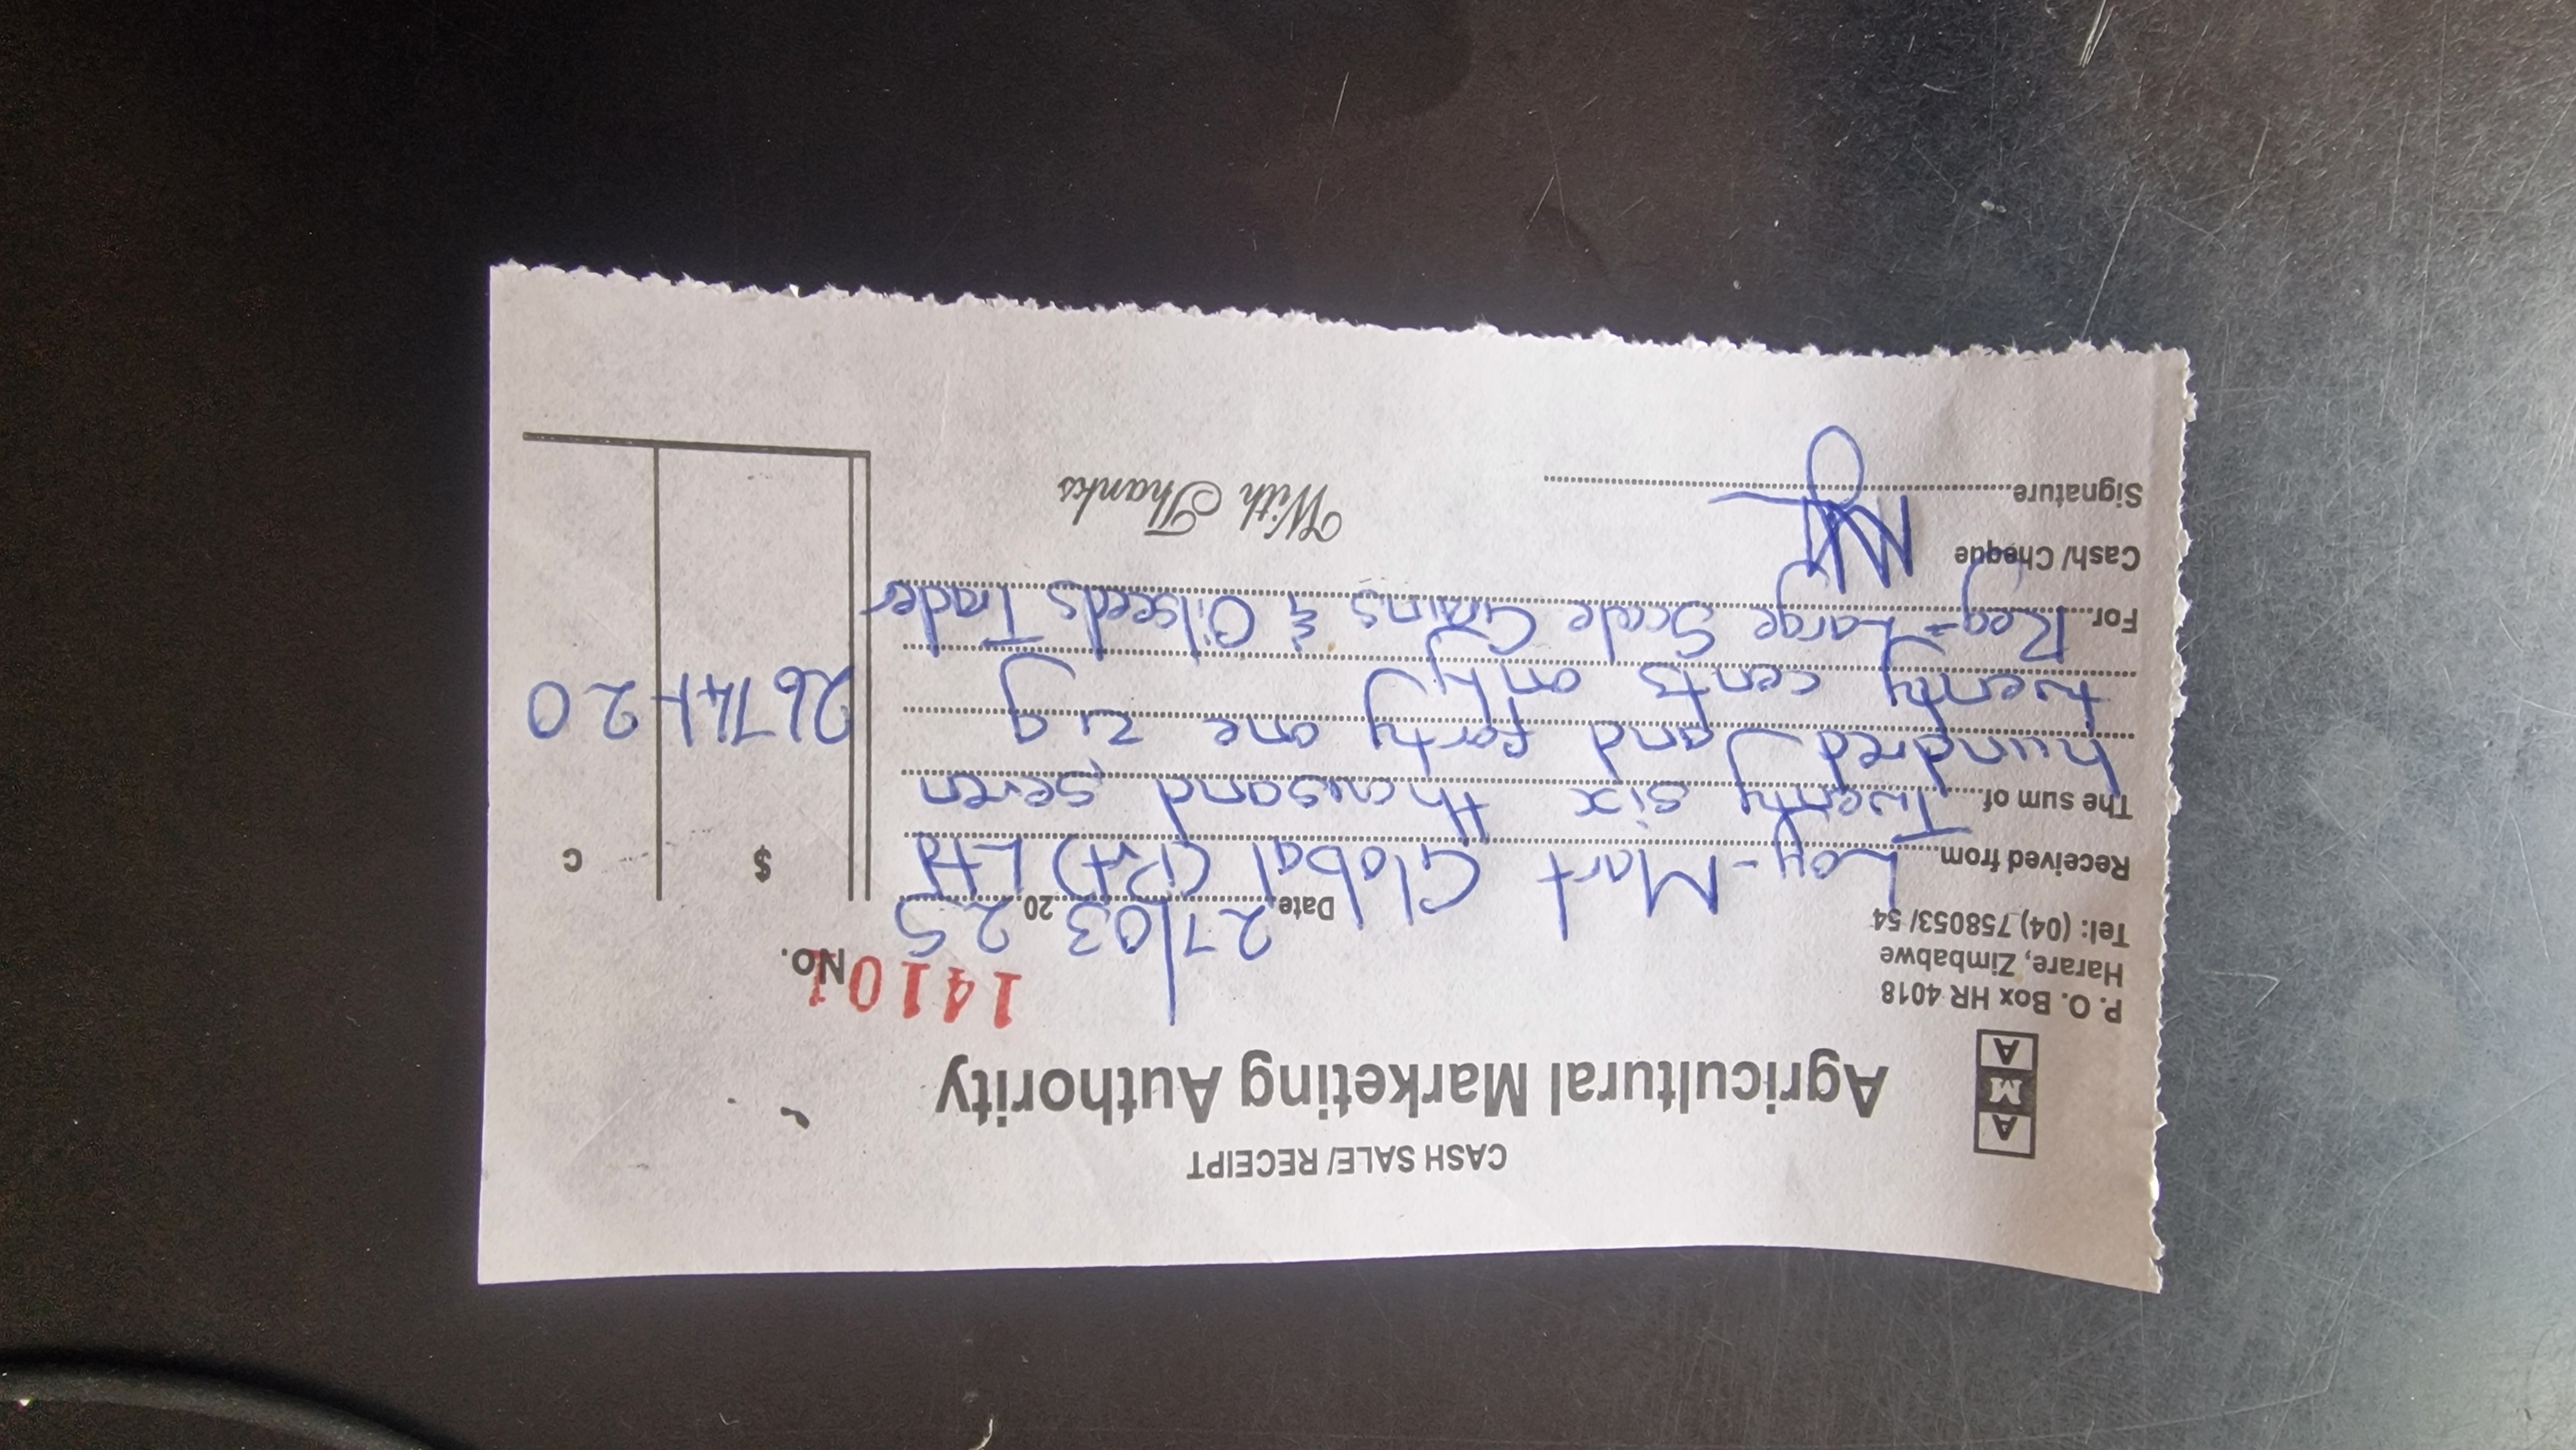 CASH SALE/ RECEIPT
A M A
Agricultural Marketing Authority
P. O. Box HR 4018
Harare, Zimbabwe
Tel: (04) 758053/ 54
14101 No.
Date 27/03 20 25
$ c
Received from Loy-Mart Global (Pvt) Ltd
The sum of Twenty six thousand seven
hundred and forty one zig
twenty cents only
26741-20
For Reg- Large Scale Grains & Oilseeds Trader
Cash/ Cheque
Signature
With Thanks